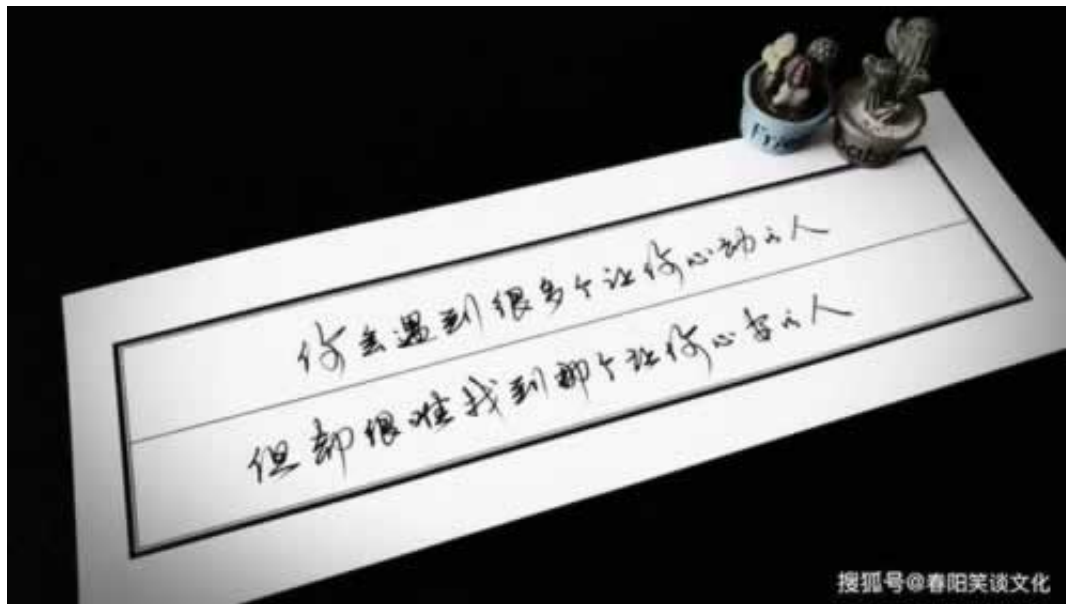 你会遇到很多个让你心动的人
但却很难找到那个让你心安的人
搜狐号@春阳笑谈文化